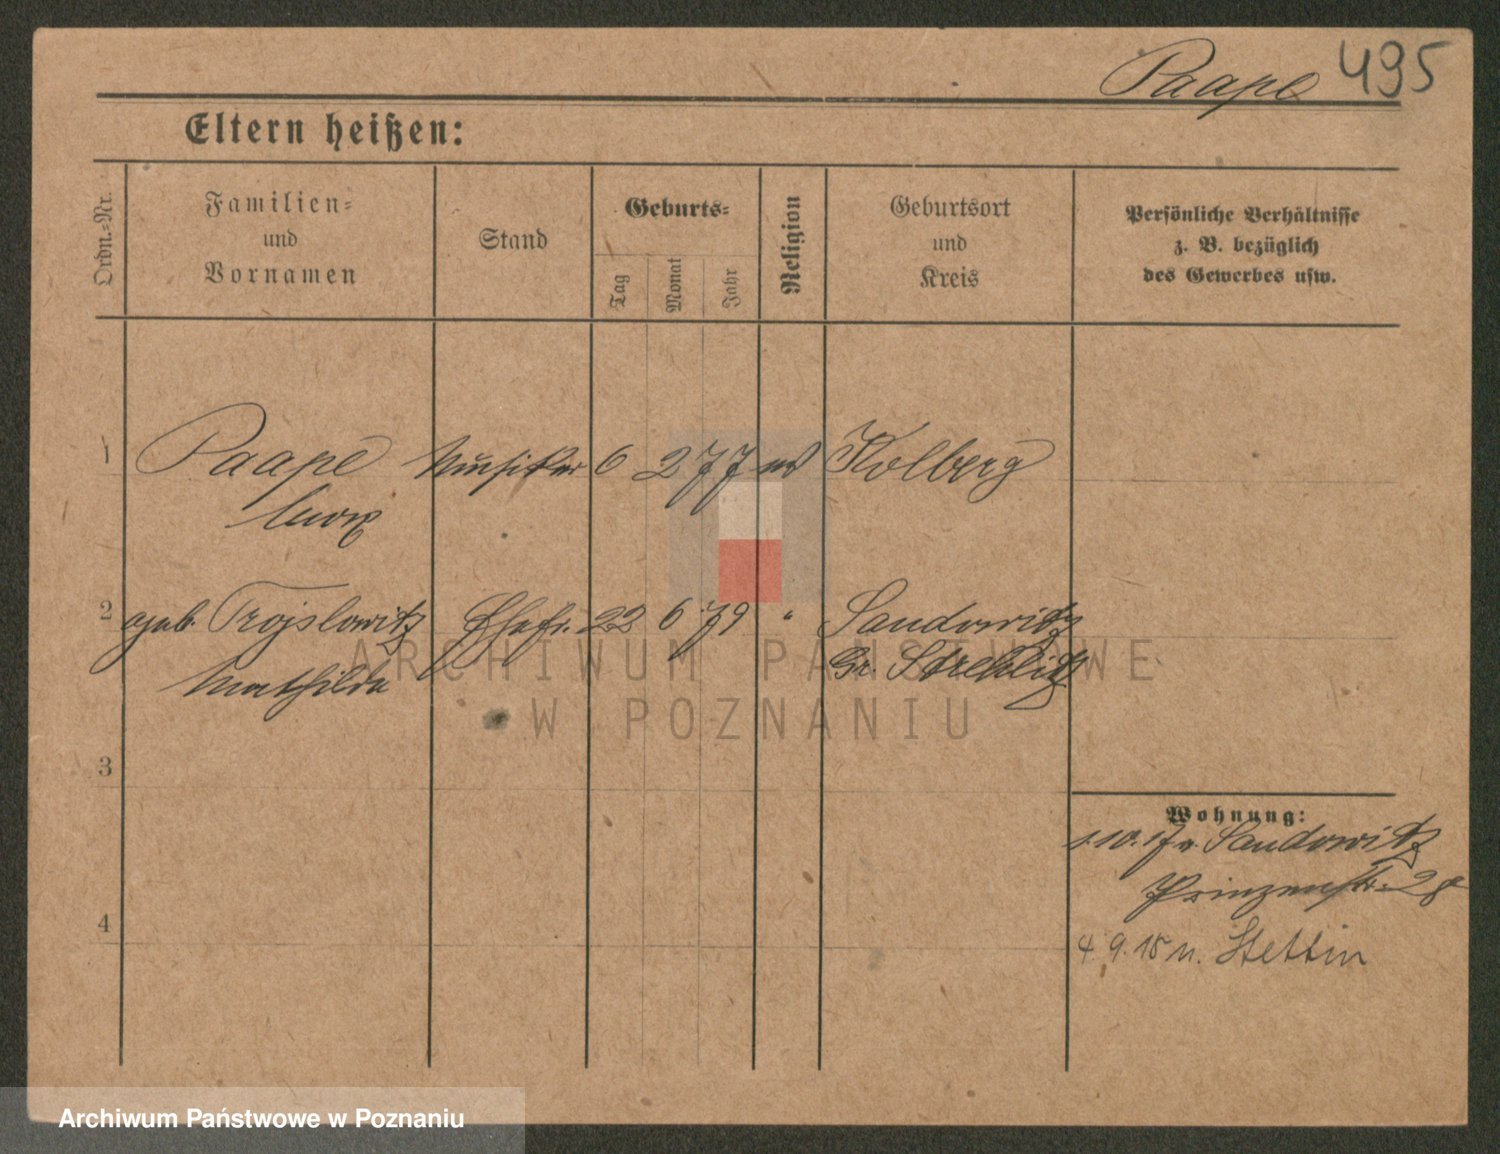 Paape 495
Eltern heißen:
Ordn.-Nr.
Familien-
und
Vornamen
Stand
Geburts-
Tag
Monat
Jahr
Religion
Geburtsort
und
Kreis
Persönliche Verhältnisse
z. B. bezüglich
des Gewerbes usw.
1 Paape Musiker 6 2 77 Kolberg
2 geb. Trojslowitz Ehefr. 22 6 79 " Sandowitz
Mathilda Gr. Strehlitz
3
4
Wohnung:
1.10.17 v. Sandowitz
Prinzenstr. 2
4.9.18 n. Stettin
ARCHIWUM PAŃSTWOWE
W POZNANIU
Archiwum Państwowe w Poznaniu